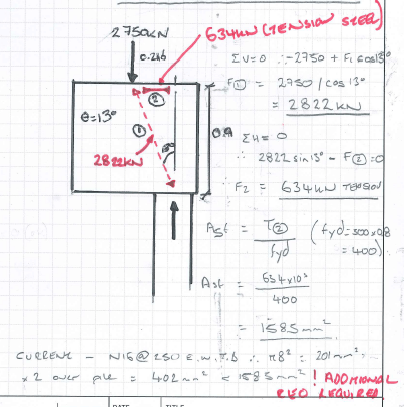 2750kN
634kN (TENSION STEEL)
0.246
②
θ=13°
①
13°
2822kN
0.9
ΣV=0 ∴-2750 + F1 cos13°
F① = 2750 / cos 13°
= 2822kN
ΣH = 0
∴ 2822 sin13° - F② = 0
∴ F2 = 634kN TENSION
Ast = T② / fyd (fyd = 500x0.8 = 400)
Ast = 634x10³ / 400
= 1585mm²
CURRENT - N16@250 E.W.T.B ∴ π8² = 201mm²
x 2 over pile = 402mm² < 1585mm² ! ADDITIONAL
REO REQUIRED
DATE TITLE